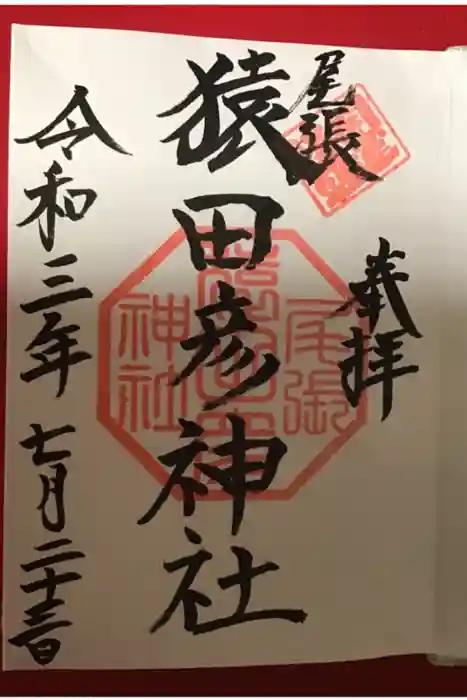 奉拝
尾張
猿田彦神社
令和三年七月二十三日
尾張
神社